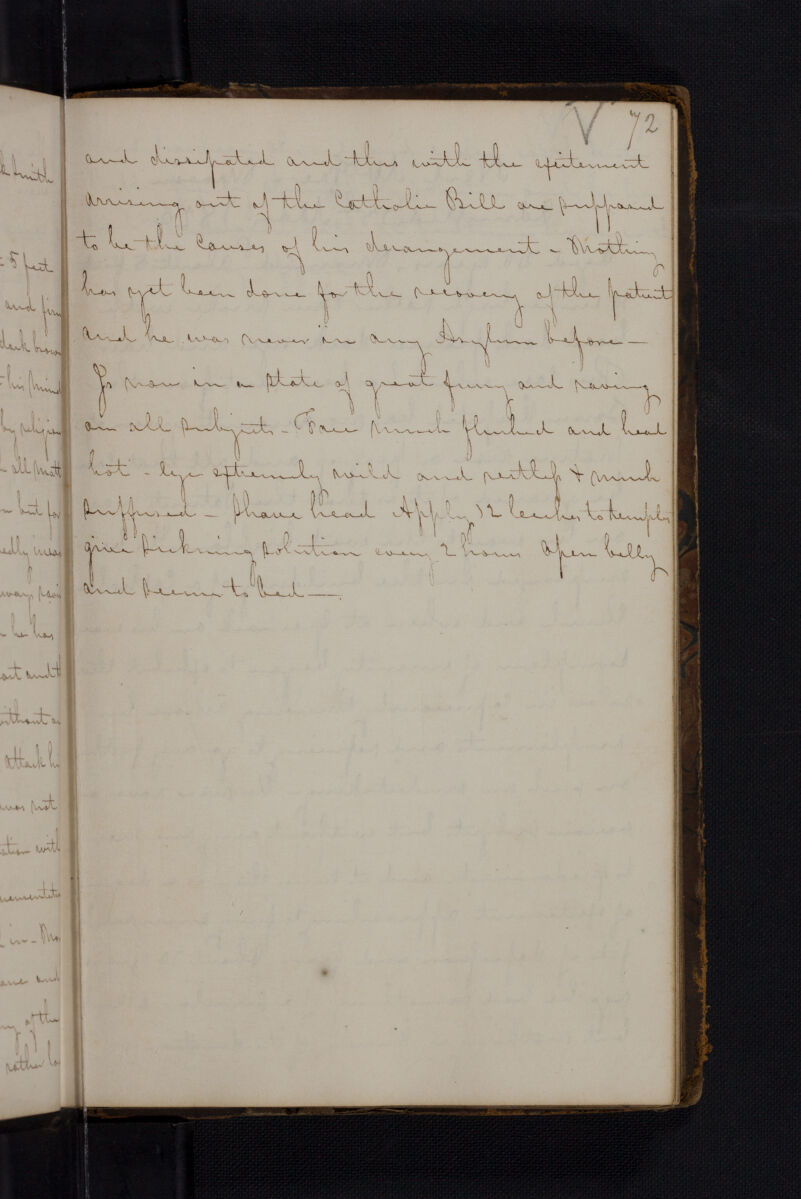 V 72
and dissipated and this with the exitement
arrising out of the Catholic Bill are supposed
to be the Causes of his derangement - Nothing
has yet been done for the recovery of the patient
and he was never in any Asylum before -
Is now in a state of great fury and raving
on all subjects - Face much flushed and head
hot - Eye extremely wild and restless & much
suffused - Shave head Apply 12 leeches to temples
give Sickning solution every 2 hours Open belly
and to bed -
Smith
5 feet
and
dark brown
his mind
by
all
but for
he has
out and
without
attack he
was not
with
in -
and
of the
rather